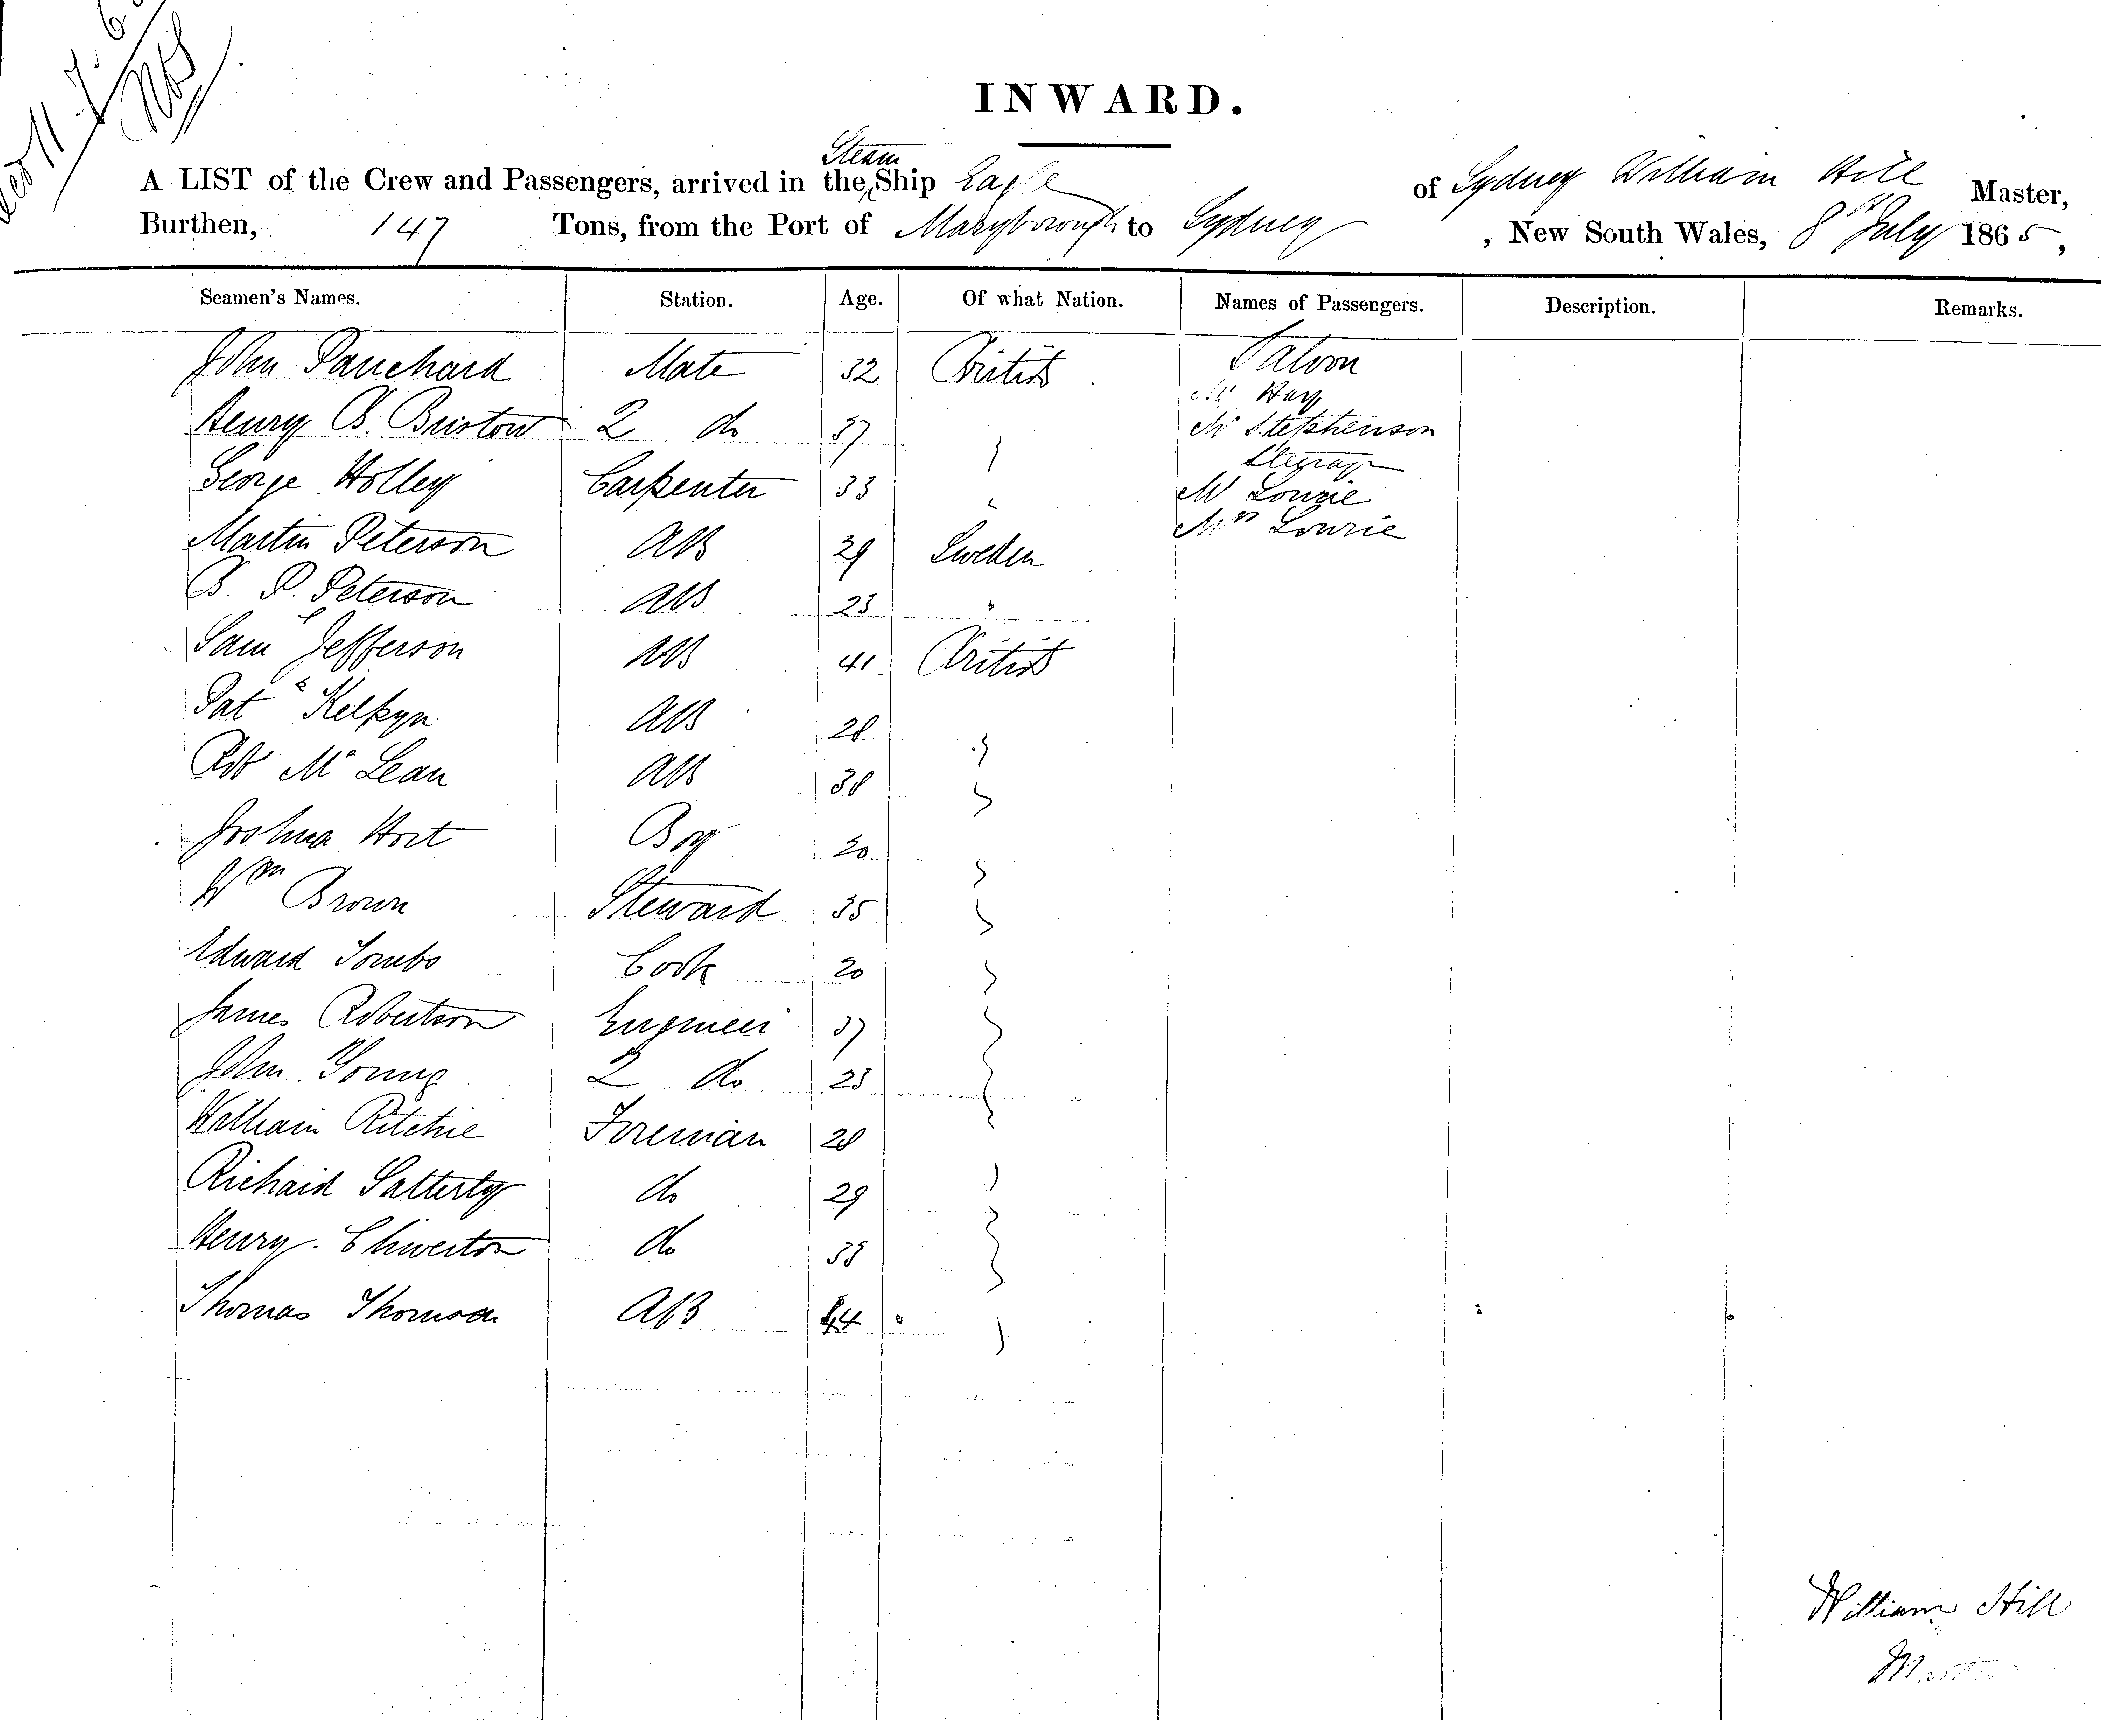 INWARD.
A LIST of the Crew and Passengers, arrived in the Steam Ship Eagle of Sydney William Hill Master,
Burthen, 147 Tons, from the Port of Maryborough to Sydney, New South Wales, 8th July 1865,
Seamen's Names. Station. Age. Of what Nation. Names of Passengers. Description. Remarks.
John Pauchard Mate 32 British Saloon
Mr Hay
Henry B. Bristow 2 do 37 Mr Stephenson
George Holley Carpenter 33 " Mr Lourie
Martin Peterson AB 29 Sweden Mrs Lourie
B. P. Peterson AB 23 "
Saml Jefferson AB 41 British
Patk AB 28
Robt McLean AB 38
Joshua Hort Boy 20
Wm Brown Steward 35
Edward Tombs Cook 20
James Robertson Engineer 37
John Young 2 do 23
William Ritchie Fireman 28
Richard Satterly do 29
Henry Chiverton do
Thomas Thomson AB 44
William Hill
Master